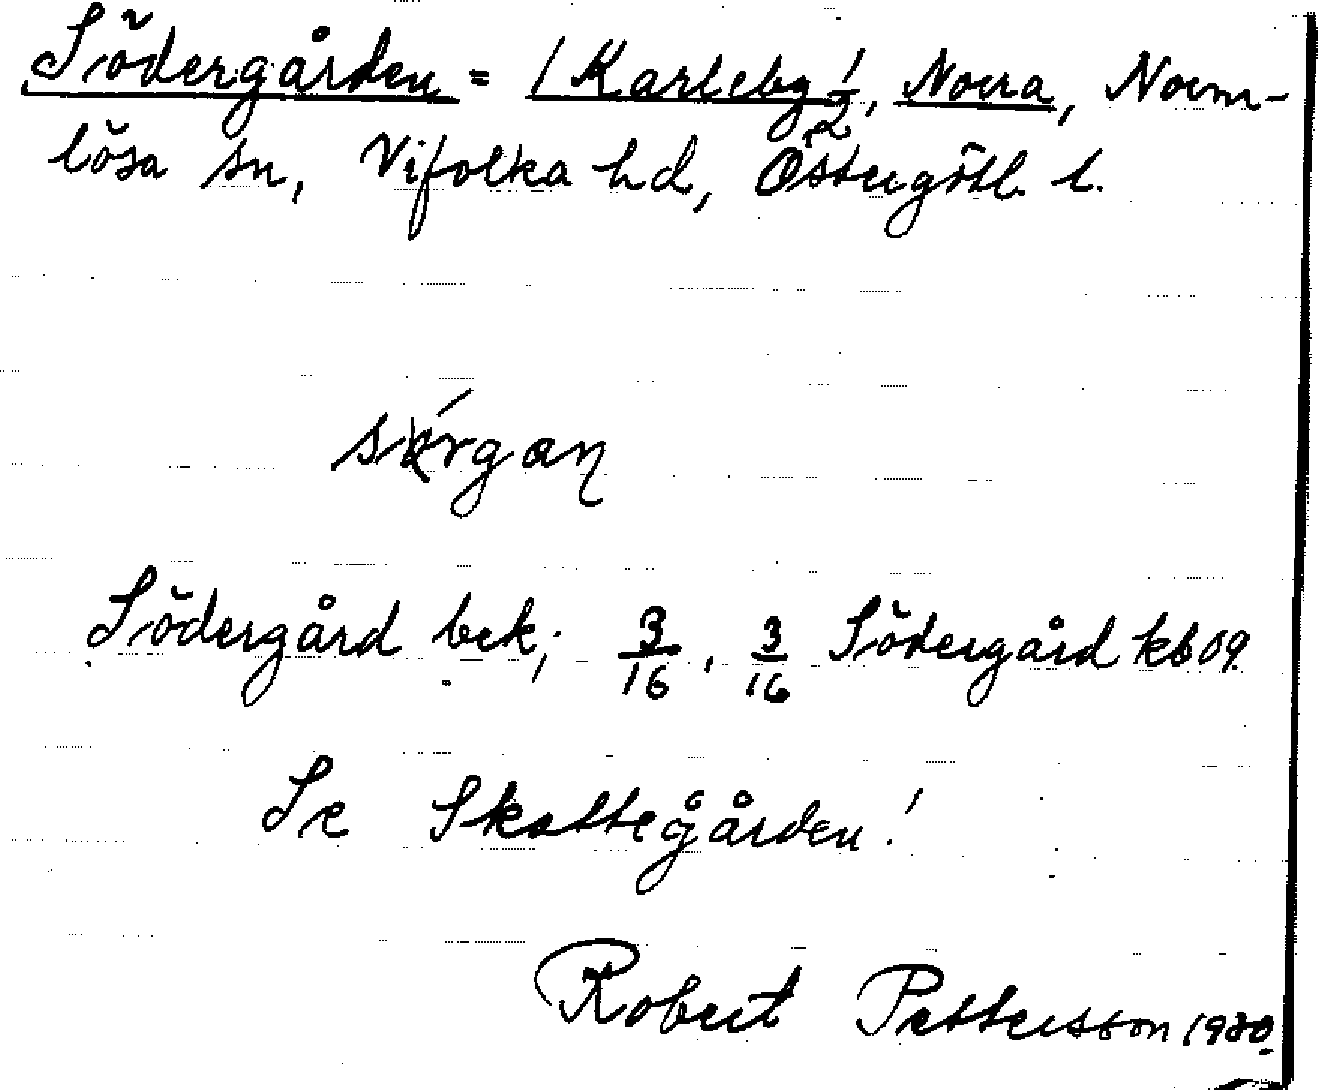 Södergården = 1 Karleby 1/2, Norra, Norm-
lösa sn, Vifolka hd, Östergötl. l.
Södergård bek; 3/16, 3/16 Södergård kb 09.
Se Skattegården!
Robert Pettersson 1930.